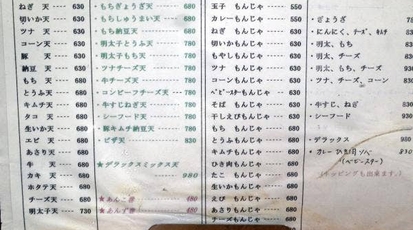 ねぎ 天 630
切いか天 630
ツナ 天 630
コーン天 630
豚 天 630
納豆 天 630
もち 天 630
とうふ天 680
キムチ天 680
タコ 天 680
生いか天 680
エビ 天 680
あさり天 680
牛 天 680
カキ 天 680
ホタテ天 680
チーズ天 680
明太子天 730
もちぎょうざ天 680
もちしゅうまい天 680
もち納豆天 680
明太子とうふ天 780
明太子もち天 780
ツナチーズ天 780
牛チーズ天 780
コンビーフチーズ天 780
牛すじねぎ天 780
シーフード天 780
豚キムチ納豆天 780
ピザ天 830
★デラックスミックス天
980
★あんこ巻 480
★あんず巻 480
玉子 もんじゃ 550
カレーもんじゃ 550
ねぎ もんじゃ 630
切いかもんじゃ 630
もやしもんじゃ 630
ツナ もんじゃ 630
コーンもんじゃ 630
ベビースターもんじゃ 630
そば もんじゃ 630
干しえびもんじゃ 630
もち もんじゃ 630
とうふもんじゃ 680
キムチもんじゃ 680
ひき肉もんじゃ 680
たこ もんじゃ 680
生いかもんじゃ 680
えび もんじゃ 680
あさりもんじゃ 680
チーズもんじゃ 680
・ぎょうざ
・にんにく、チーズ、キムチ 83
・明太、もち 83
・明太、チーズ 83
・明太、もち、チーズ 93
・ツナ、チーズ、コーン 83
・牛すじ、ねぎ 83
・シーフード 93
・デラックス 98
(ベビースター)
(トッピングも出来ます。)